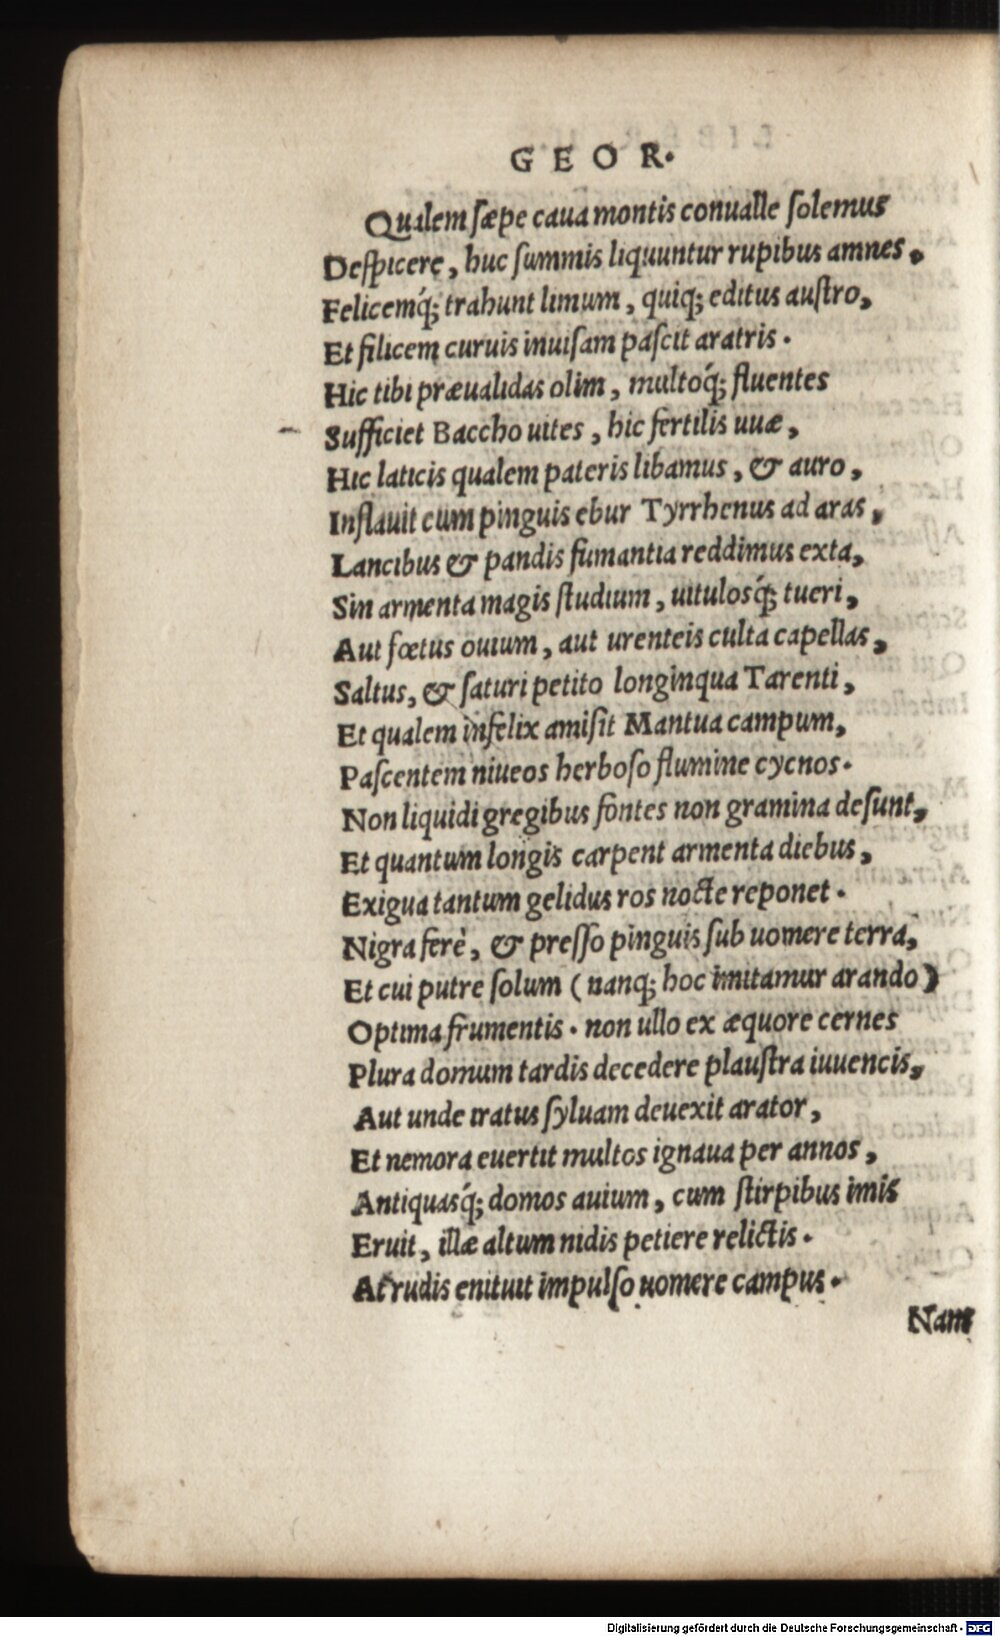 GEOR.
Qualem sæpe caua montis conualle solemus
Despicere, huc summis liquuntur rupibus amnes.
Felicemq́; trahunt limum, quiq; editus austro,
Et filicem curuis inuisam pascit aratris.
Hic tibi præualidas olim, multoq́; fluentes
Sufficiet Baccho uites, hic fertilis uuæ,
Hic laticis qualem pateris libamus, & auro,
Inflauit cum pinguis ebur Tyrrhenus ad aras,
Lancibus & pandis fumantia reddimus exta,
Sin armenta magis studium, uitulosq́; tueri,
Aut fœtus ouium, aut urenteis culta capellas,
Saltus, & saturi petito longinqua Tarenti,
Et qualem infelix amisit Mantua campum,
Pascentem niueos herboso flumine cycnos.
Non liquidi gregibus fontes non gramina desunt,
Et quantum longis carpent armenta diebus,
Exigua tantum gelidus ros nocte reponet.
Nigra ferè, & presso pinguis sub uomere terra,
Et cui putre solum (nanq; hoc imitamur arando)
Optima frumentis. non ullo ex æquore cernes
Plura domum tardis decedere plaustra iuuencis,
Aut unde iratus syluam deuexit arator,
Et nemora euertit multos ignaua per annos,
Antiquasq́; domos auium, cum stirpibus imis
Eruit, illæ altum nidis petiere relictis.
At rudis enituit impulso uomere campus.
Nam
Digitalisierung gefördert durch die Deutsche Forschungsgemeinschaft - DFG